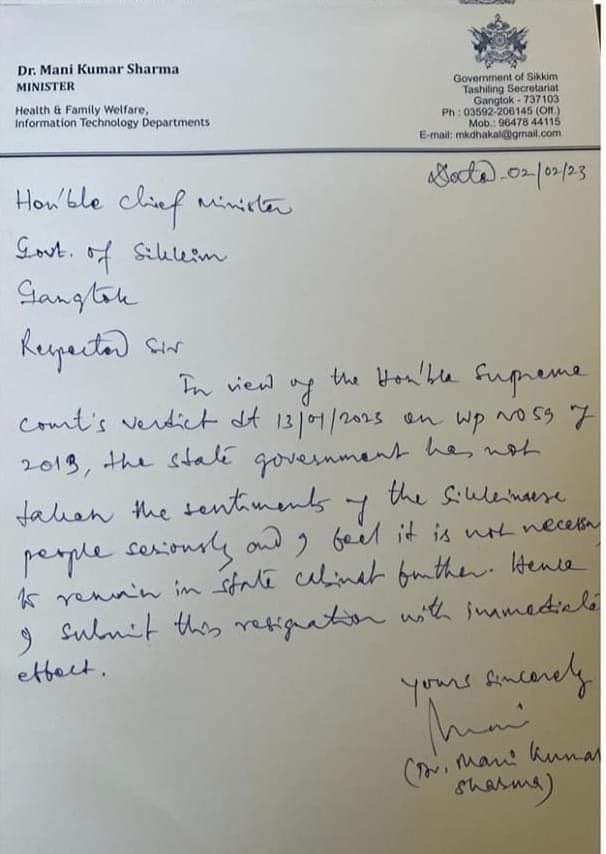 Dr. Mani Kumar Sharma
MINISTER
Health & Family Welfare,
Information Technology Departments
Government of Sikkim
Tashiling Secretariat
Gangtok - 737103
Ph : 03592-206145 (Off.)
Mob.: 96478 44115
E-mail: mkdhakal@gmail.com
Date - 02/02/23
Hon'ble Chief Minister
Govt. of Sikkim
Gangtok
Respected Sir
In view of the Hon'ble Supreme
Court's verdict dt 13/01/2023 on WP NO 59 of
2013, the state government has not
taken the sentiments of the Sikkimese
people seriously and I feel it is not necessary
to remain in state cabinet further. Hence
I submit this resignation with immediate
effect.
Yours sincerely
Mani
(Dr. Mani Kumar
Sharma)